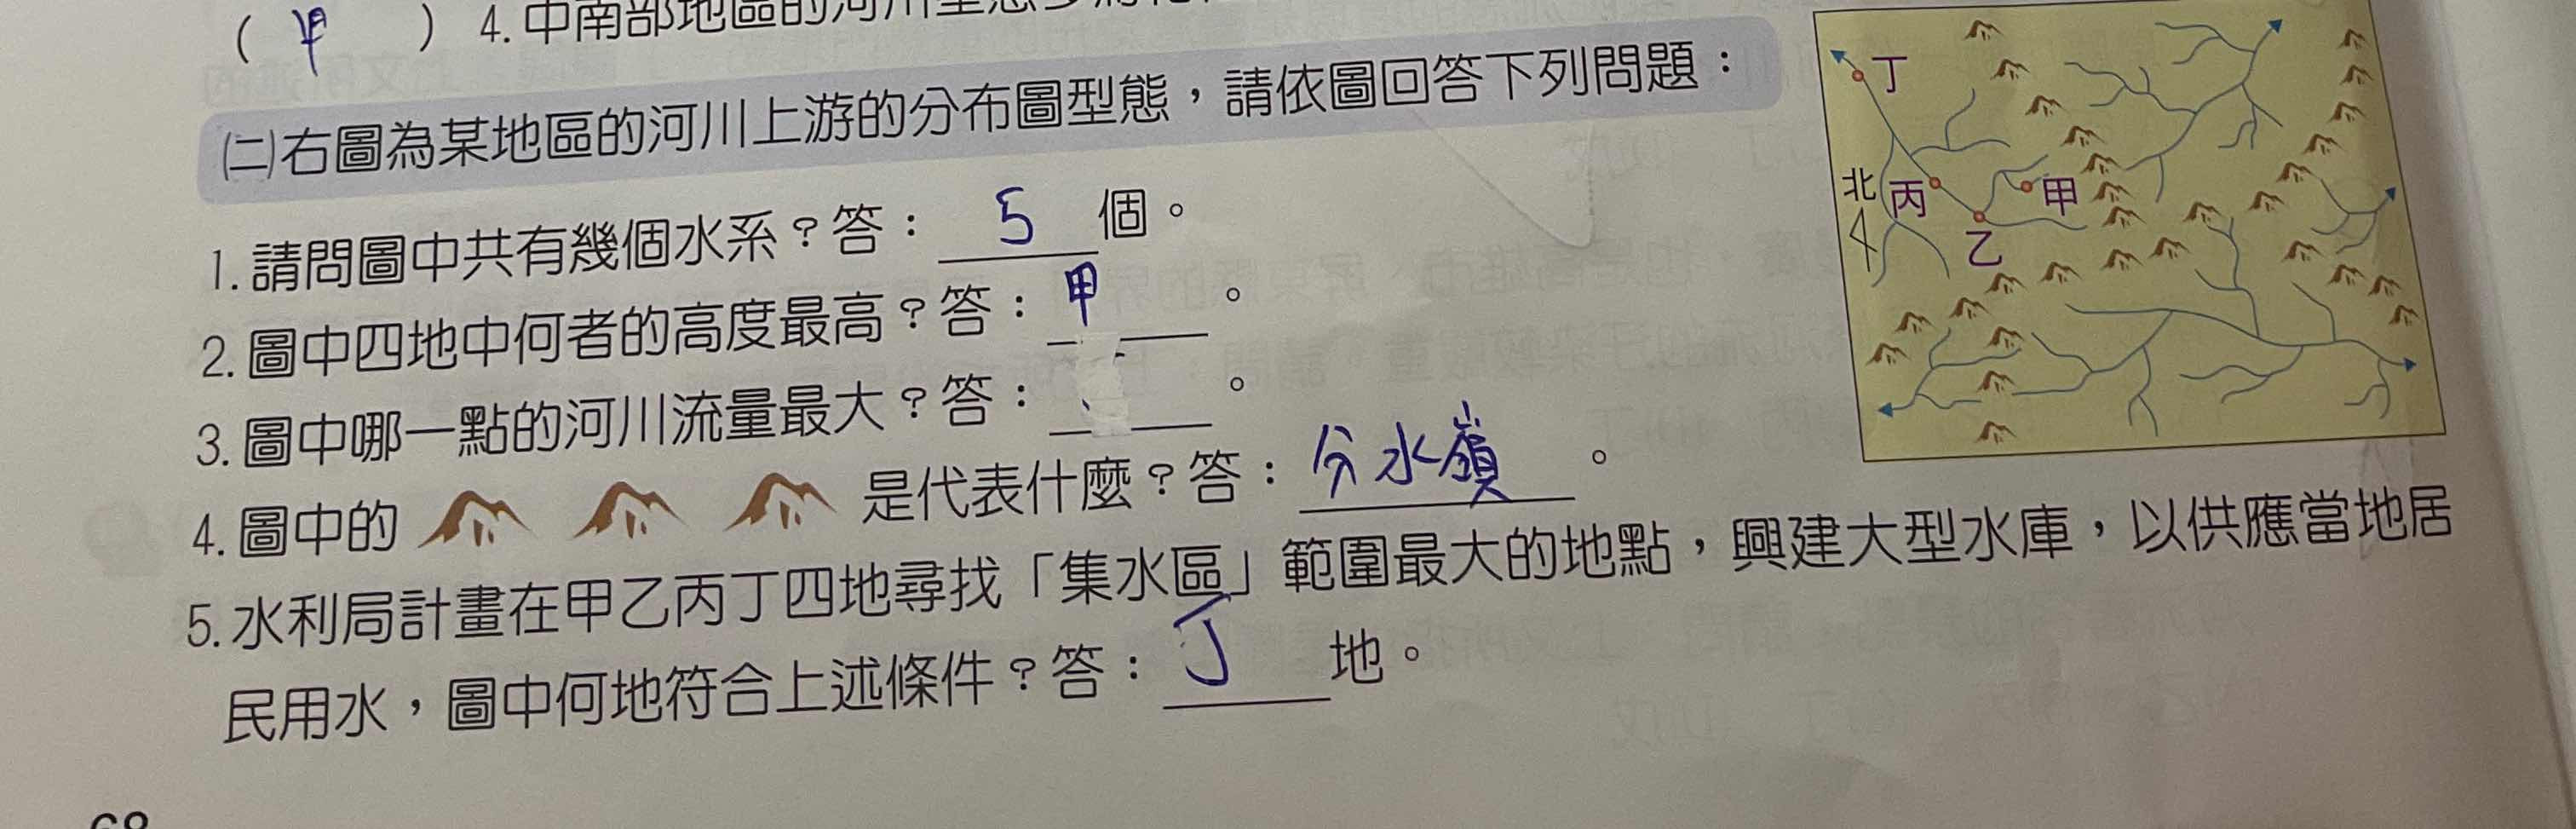 ( 甲 ) 4. 中南部地區的河川
㈡右圖為某地區的河川上游的分布圖型態，請依圖回答下列問題：
1. 請問圖中共有幾個水系？答： 5 個。
2. 圖中四地中何者的高度最高？答： 甲 。
3. 圖中哪一點的河川流量最大？答： 。
4. 圖中的 是代表什麼？答： 分水嶺 。
5. 水利局計畫在甲乙丙丁四地尋找「集水區」範圍最大的地點，興建大型水庫，以供應當地居
民用水，圖中何地符合上述條件？答： 丁 地。
丁
北
丙
甲
乙